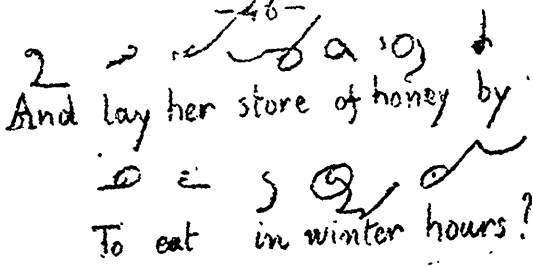 -46-
And lay her store of honey by
To eat in winter hours?